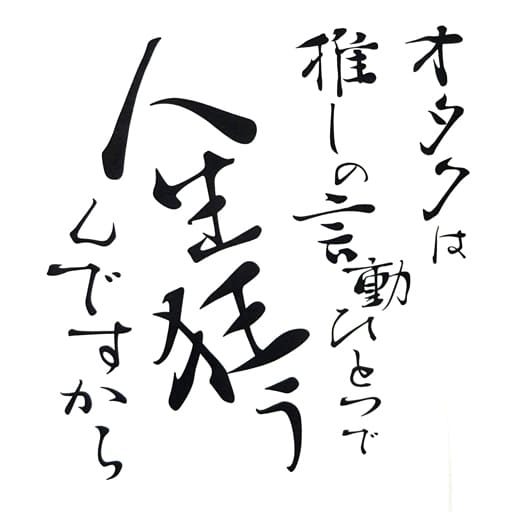 オタクは
推しの言動ひとつで
人生狂う
んですから